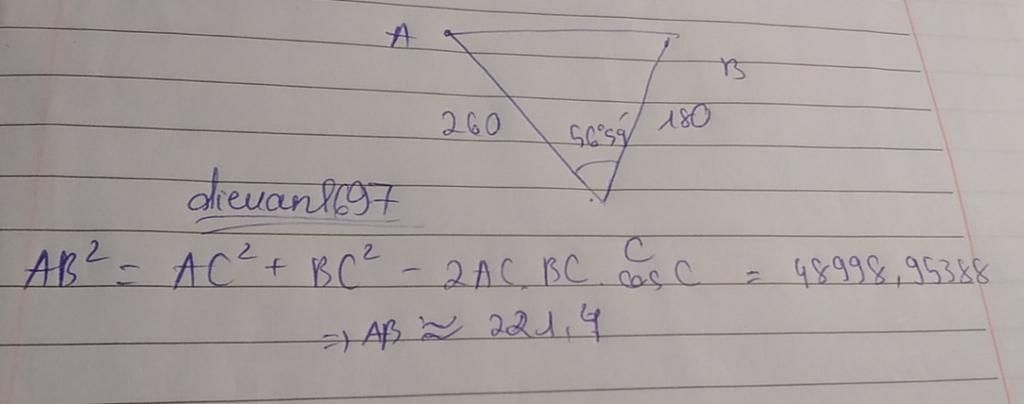 A
B
260
56°59'
180
dievan8697
C
AB² = AC² + BC² - 2AC.BC.cos C = 48998,95388
=> AB ≈ 221,4